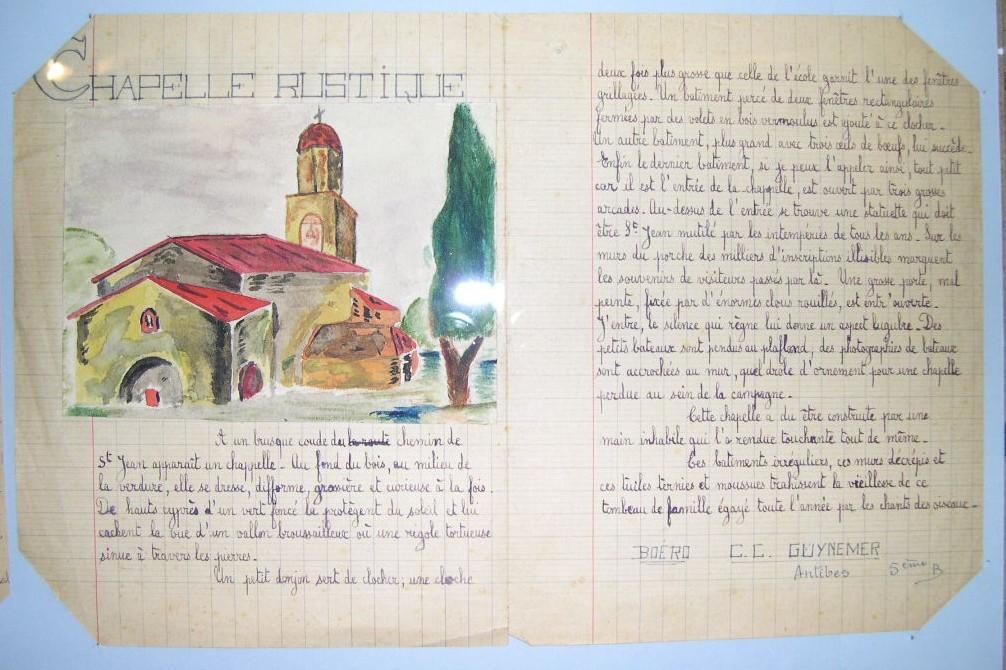 CHAPELLE RUSTIQUE
A un brusque coude du la route chemin de
St Jean apparaît un chappelle. Au fond du bois, au milieu de
la verdure, elle se dresse, difforme, grossière et curieuse à la fois.
De hauts cyprès d'un vert foncé la protègent du soleil et lui
cachent la vue d'un vallon broussailleux où une rigole tortueuse
sinue à travers les pierres.
Un petit donjon sert de clocher, une cloche
deux fois plus grosse que celle de l'école garnit l'une des fenêtres
grillagées. Un batiment percé de deux fenêtres rectangulaires
fermées par des volets en bois vermoulus est ajouté à ce clocher.
Un autre batiment, plus grand avec trois œils de bœufs, lui succède.
Enfin le dernier batiment, si je peux l'appeler ainsi, tout petit
car il est l'entrée de la chappelle, est ouvert par trois grosses
arcades. Au-dessus de l'entrée se trouve une statuette qui doit
être St Jean mutilé par les intempéries de tous les ans. Sur les
murs du porche des milliers d'inscriptions illisibles marquent
les souvenirs de visiteurs passés par là. Une grosse porte, mal
peinte, fixée par d'énormes clous rouillés, est entr'ouverte.
J'entre, le silence qui règne lui donne un aspect lugubre. Des
petits bateaux sont pendus au plafond, des photographies de bateaux
sont accrochées au mur, quel drôle d'ornement pour une chapelle
perdue au sein de la campagne.
Cette chapelle a du être construite par une
main inhabile qui l'a rendue touchante tout de même.
Ces batiments irréguliers, ces murs décrépis et
ces tuiles ternies et moussues trahissent la vieillesse de ce
tombeau de famille égayé toute l'année par les chants des oiseaux.
BOÉRO C.C. GUYNEMER
Antibes 5ème B